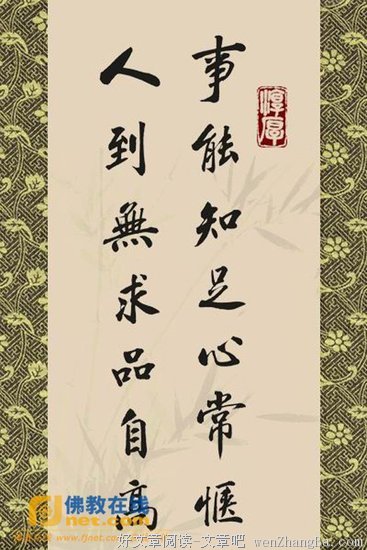 事能知足心常惬
人到無求品自高
淳厚
佛教在线
net.com
www.fjnet.com
好文章阅读-文章吧 wenzhangba.com